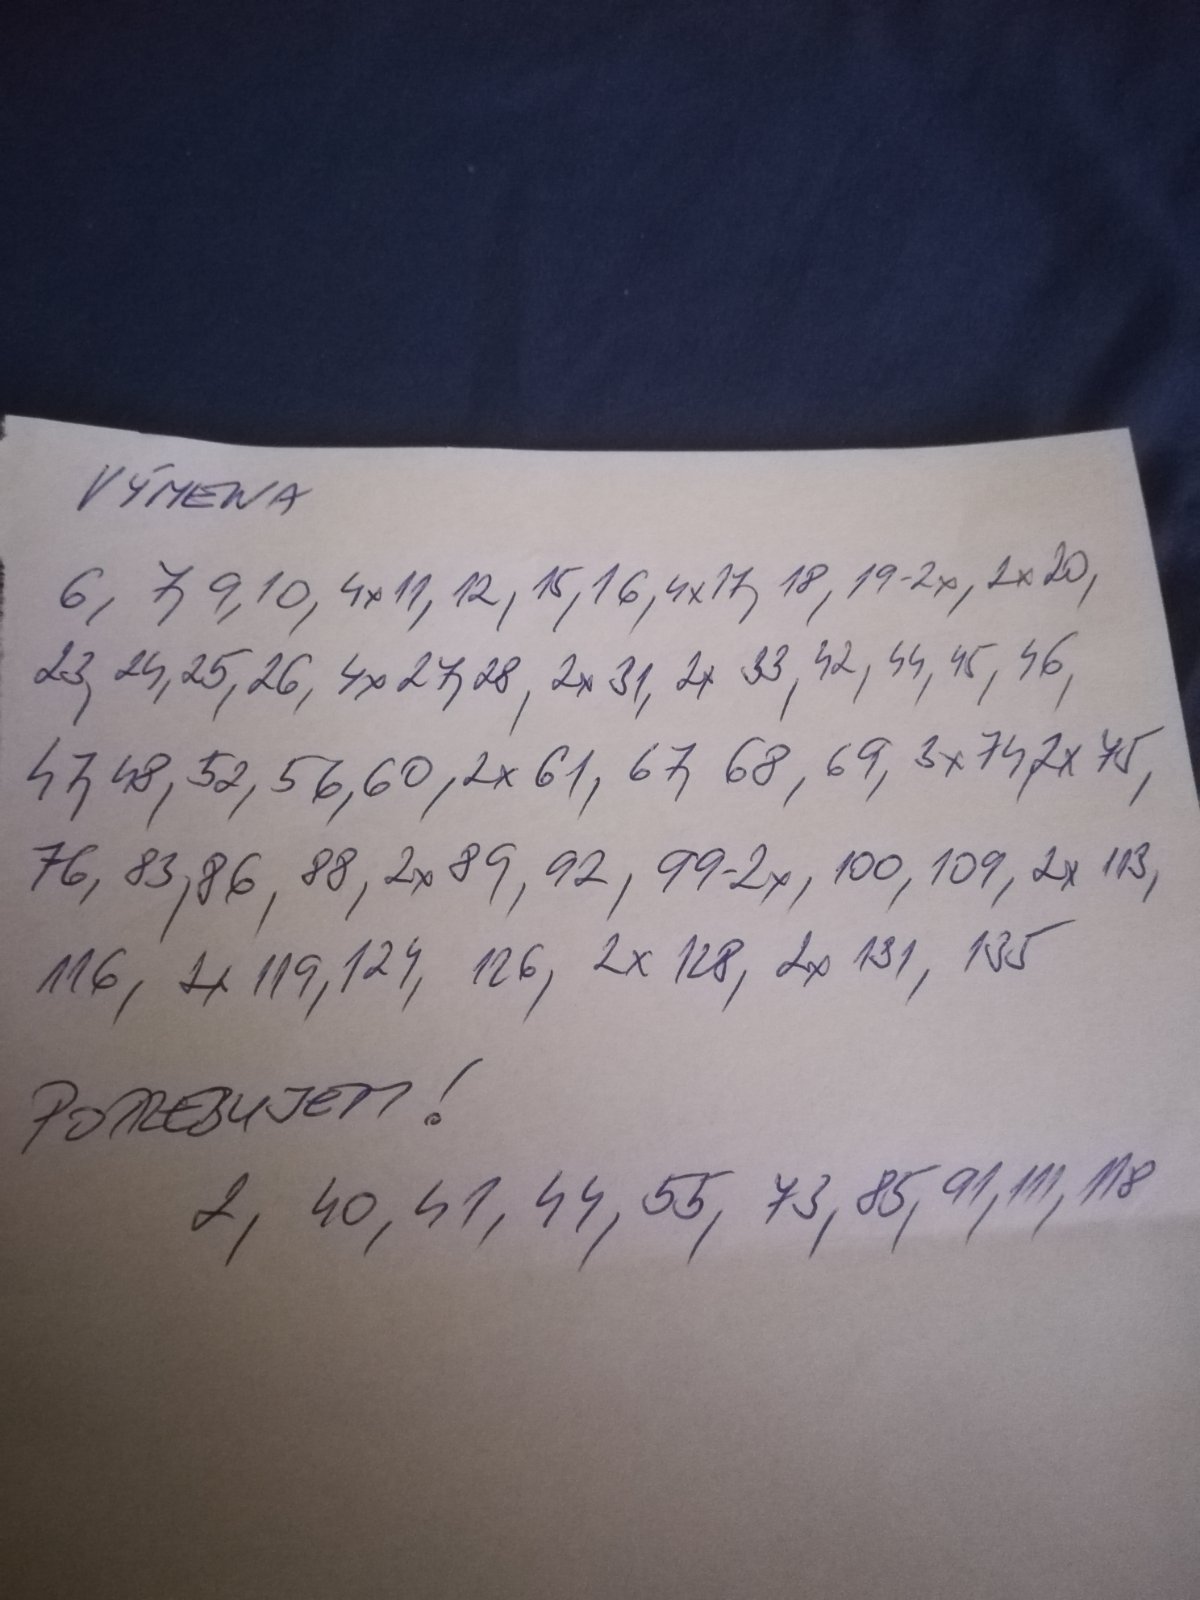 VÝMENA
6, 7, 9, 10, 4x11, 12, 15, 16, 4x17, 18, 19-2x, 2x20,
23, 24, 25, 26, 4x27, 28, 2x31, 2x 33, 42, 44, 45, 46,
47, 48, 52, 56, 60, 2x61, 67, 68, 69, 3x74, 2x75,
76, 83, 86, 88, 2x89, 92, 99-2x, 100, 109, 2x 113,
116, 2x 119, 124, 126, 2x 128, 2x 131, 135
POTREBUJEM!
2, 40, 41, 44, 55, 73, 85, 91, 111, 118